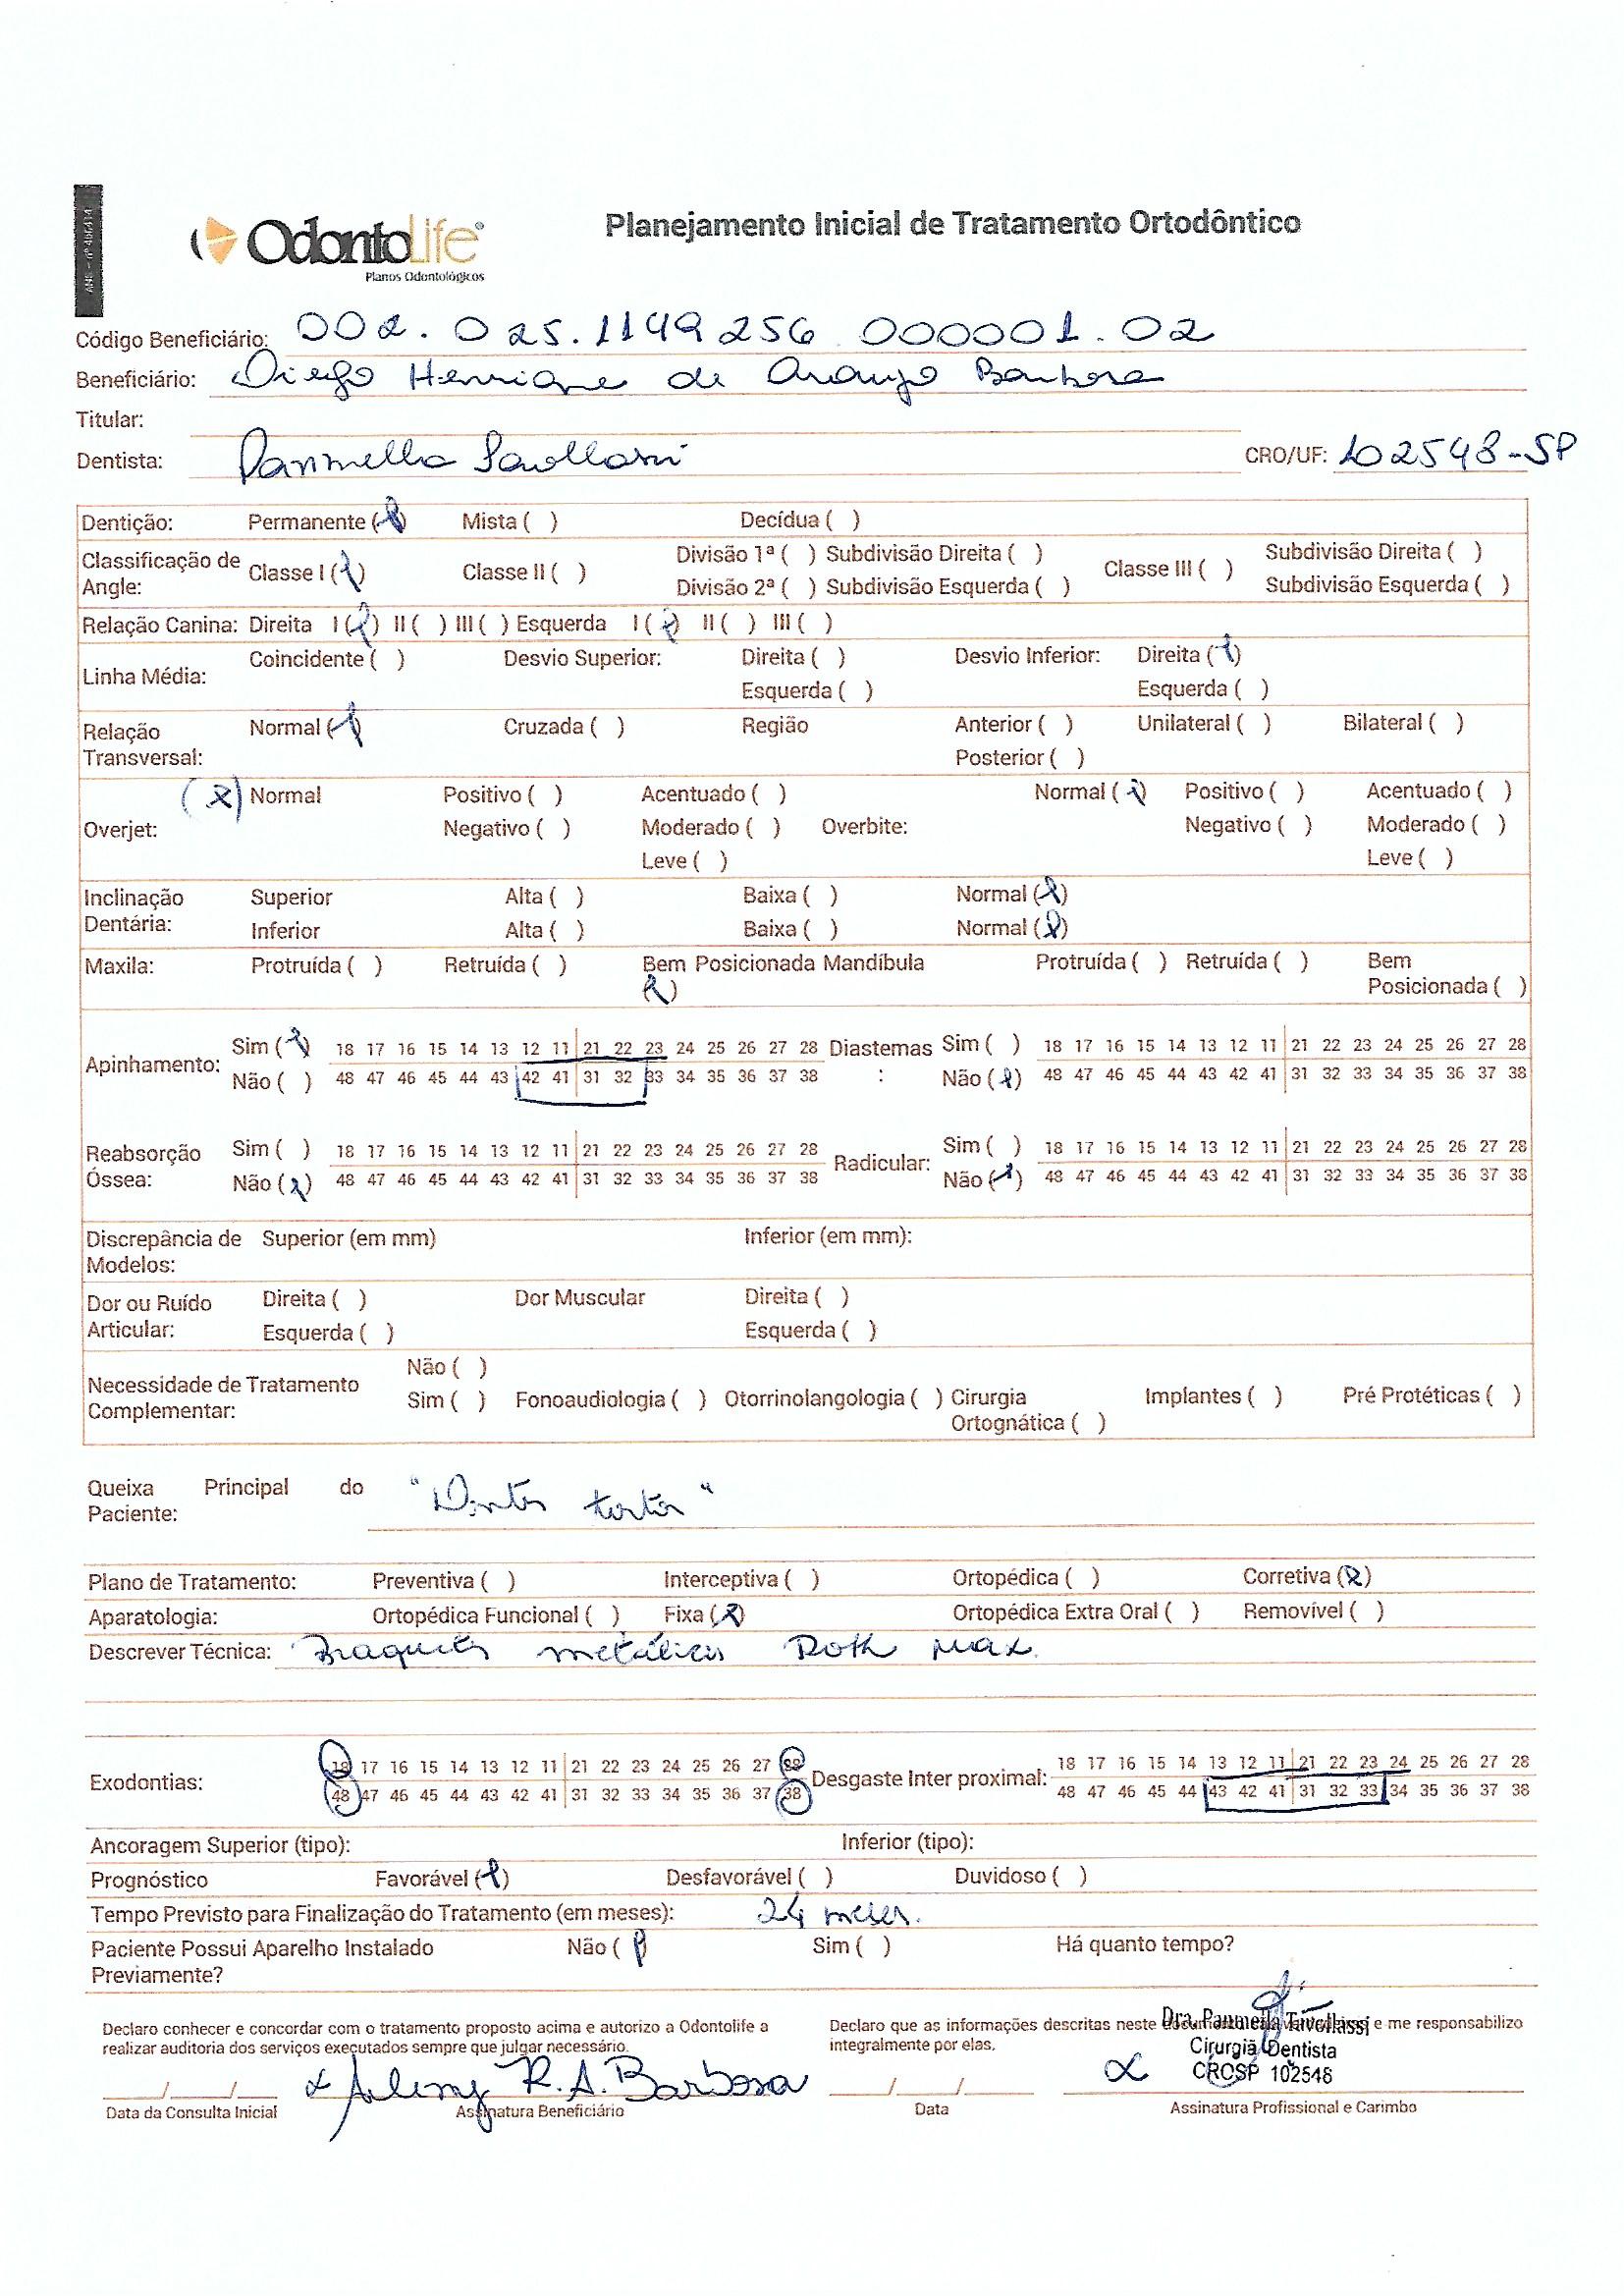 ANS - nº 406414
OdontoLife®
Planos Odontológicos
Planejamento Inicial de Tratamento Ortodôntico
Código Beneficiário: 002.025.1149256 000001.02
Beneficiário: Diego Henrique de Araujo Barbosa
Titular:
Dentista: Panmella CRO/UF: 102548-SP
Dentição: Permanente (X) Mista ( ) Decídua ( )
Classificação de Angle: Classe I (X) Classe II ( ) Divisão 1ª ( ) Subdivisão Direita ( ) Classe III ( ) Subdivisão Direita ( )
Divisão 2ª ( ) Subdivisão Esquerda ( ) Subdivisão Esquerda ( )
Relação Canina: Direita I (X) II ( ) III ( ) Esquerda I (X) II ( ) III ( )
Linha Média: Coincidente ( ) Desvio Superior: Direita ( ) Desvio Inferior: Direita (X)
Esquerda ( ) Esquerda ( )
Relação Transversal: Normal (X) Cruzada ( ) Região Anterior ( ) Unilateral ( ) Bilateral ( )
Posterior ( )
Overjet: (X) Normal Positivo ( ) Acentuado ( ) Overbite: Normal (X) Positivo ( ) Acentuado ( )
Negativo ( ) Moderado ( ) Negativo ( ) Moderado ( )
Leve ( ) Leve ( )
Inclinação Dentária: Superior Alta ( ) Baixa ( ) Normal (X)
Inferior Alta ( ) Baixa ( ) Normal (X)
Maxila: Protruída ( ) Retruída ( ) Bem Posicionada (X) Mandíbula Protruída ( ) Retruída ( ) Bem Posicionada ( )
Apinhamento: Sim (X) 18 17 16 15 14 13 12 11 21 22 23 24 25 26 27 28 Diastemas: Sim ( ) 18 17 16 15 14 13 12 11 21 22 23 24 25 26 27 28
Não ( ) 48 47 46 45 44 43 42 41 31 32 33 34 35 36 37 38 Não (X) 48 47 46 45 44 43 42 41 31 32 33 34 35 36 37 38
Reabsorção Óssea: Sim ( ) 18 17 16 15 14 13 12 11 21 22 23 24 25 26 27 28 Radicular: Sim ( ) 18 17 16 15 14 13 12 11 21 22 23 24 25 26 27 28
Não (X) 48 47 46 45 44 43 42 41 31 32 33 34 35 36 37 38 Não (X) 48 47 46 45 44 43 42 41 31 32 33 34 35 36 37 38
Discrepância de Modelos: Superior (em mm) Inferior (em mm):
Dor ou Ruído Articular: Direita ( ) Dor Muscular Direita ( )
Esquerda ( ) Esquerda ( )
Necessidade de Tratamento Complementar: Não ( )
Sim ( ) Fonoaudiologia ( ) Otorrinolangologia ( ) Cirurgia Ortognática ( ) Implantes ( ) Pré Protéticas ( )
Queixa Principal do Paciente: "Dentes tortos"
Plano de Tratamento: Preventiva ( ) Interceptiva ( ) Ortopédica ( ) Corretiva (X)
Aparatologia: Ortopédica Funcional ( ) Fixa (X) Ortopédica Extra Oral ( ) Removível ( )
Descrever Técnica: Braquetes metálicos Roth Max
Exodontias: 18 17 16 15 14 13 12 11 21 22 23 24 25 26 27 28 Desgaste Inter proximal: 18 17 16 15 14 13 12 11 21 22 23 24 25 26 27 28
48 47 46 45 44 43 42 41 31 32 33 34 35 36 37 38 48 47 46 45 44 43 42 41 31 32 33 34 35 36 37 38
Ancoragem Superior (tipo): Inferior (tipo):
Prognóstico Favorável (X) Desfavorável ( ) Duvidoso ( )
Tempo Previsto para Finalização do Tratamento (em meses): 24 meses.
Paciente Possui Aparelho Instalado Previamente? Não (X) Sim ( ) Há quanto tempo?
Declaro conhecer e concordar com o tratamento proposto acima e autorizo a Odontolife a
realizar auditoria dos serviços executados sempre que julgar necessário.
Declaro que as informações descritas neste documento e me responsabilizo
integralmente por elas.
Dra. Panmella
Cirurgiã Dentista
CROSP 102548
x R. A. Barbosa
x
__/__/__ Data da Consulta Inicial Assinatura Beneficiário __/__/__ Data Assinatura Profissional e Carimbo